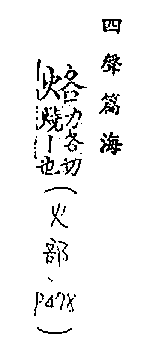 四聲篇海
力各切
火燒丨也
（火部、P478）